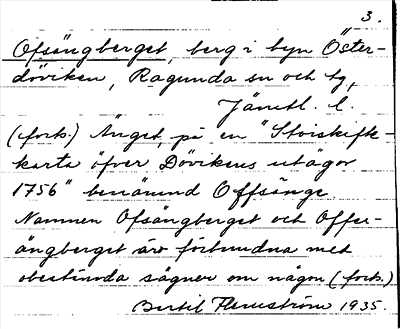 3.
Ofsångberget, berg i byn Öster-
döviken, Ragunda sn och tg,
Jämtl. l.
(forts.) Änget, på en "Storskifts-
karta öfver Dövikens utägor
1756" benämnd Offsånge
Namnen Ofsångberget och Offer-
ångberget äro förbundna med
obestämda sägner om någon (forts.)
Bertil Flemström 1935.